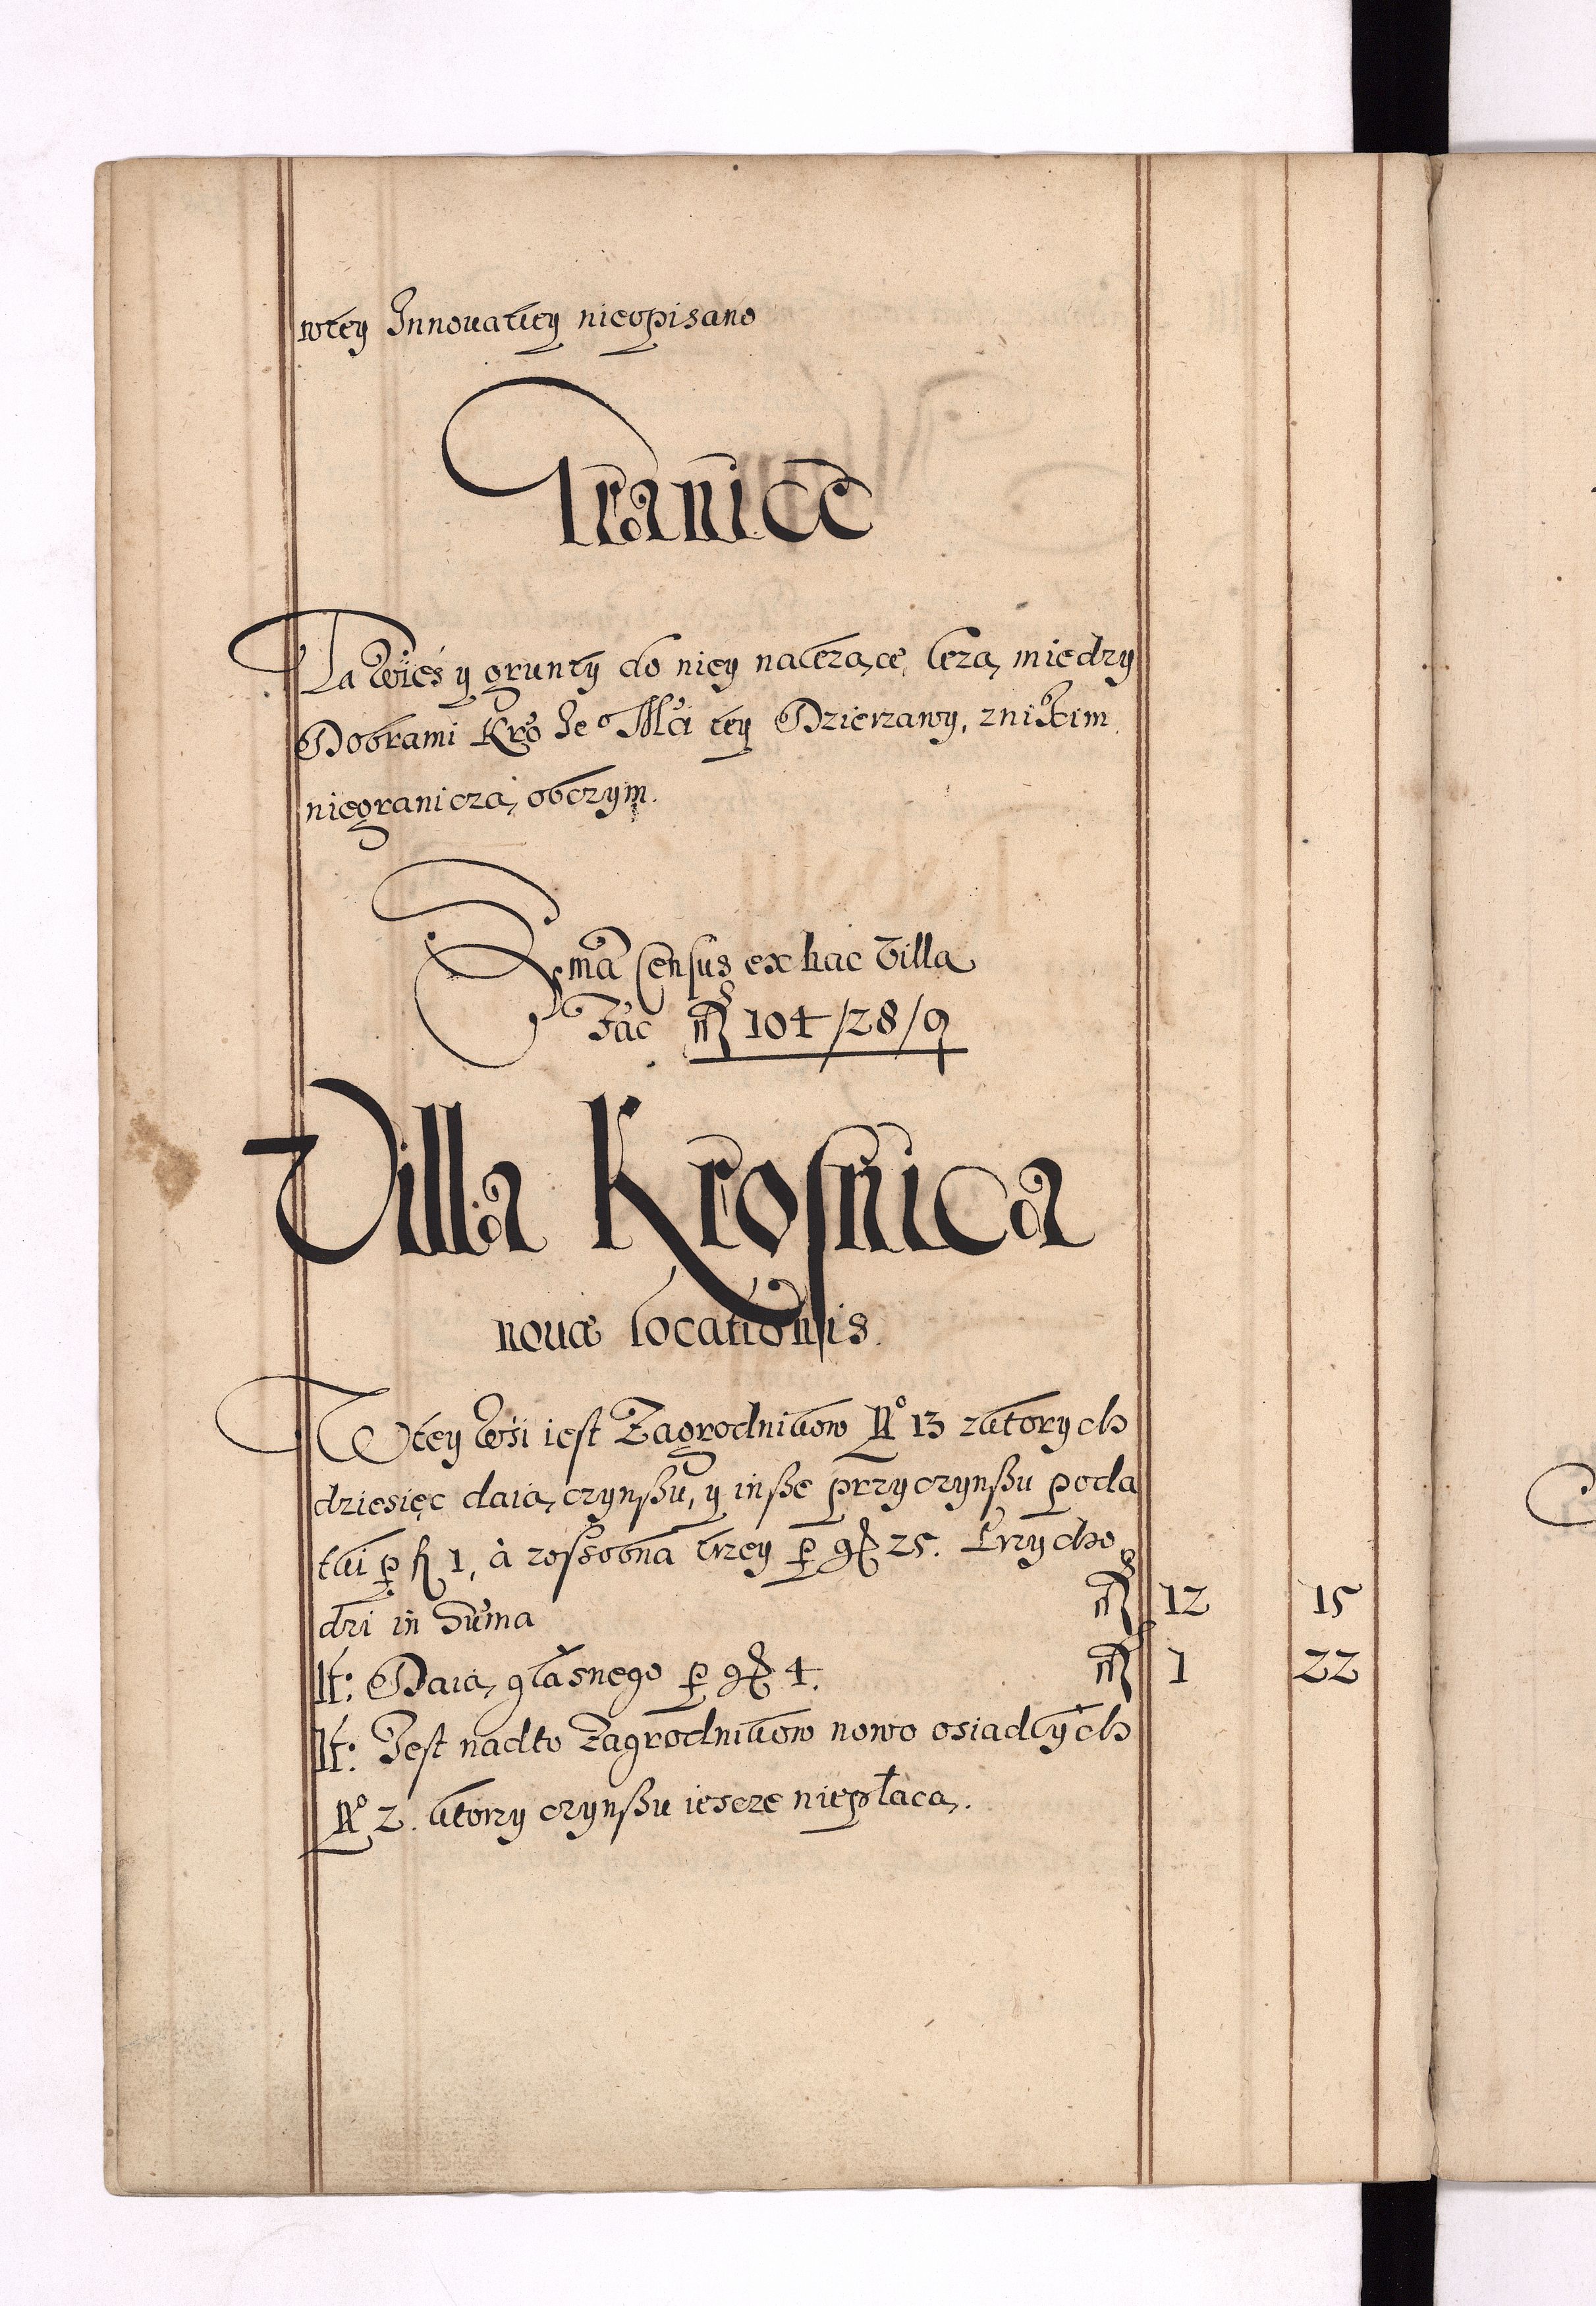 wtey Innouatiey nieopisano
Granice
Ta Wieś y grunty do niey nalezące, lezą miedzy
Dobrami Kro Je° Mći tey Dzierzawy, znikim
niegraniczą obczym.
Sma Census ex hac Villa
Fac 104/28/9
Villa Krosnica
nouæ locationis
Wtey Wsi iest Zagrodnikow N° 13 zktorych
dziesięc daią czynßu, y inße przyczynßu poda
tki p fl 1, à zossobna trzey p gr 25. Przycho
dzi in Suma fl 12 15
It: Daią głasnego p gr 4. fl 1 22
It: Jest nadto Zagrodnikow nowo osiadłych
N° 2. ktorzy czynßu iescze niepłacą.